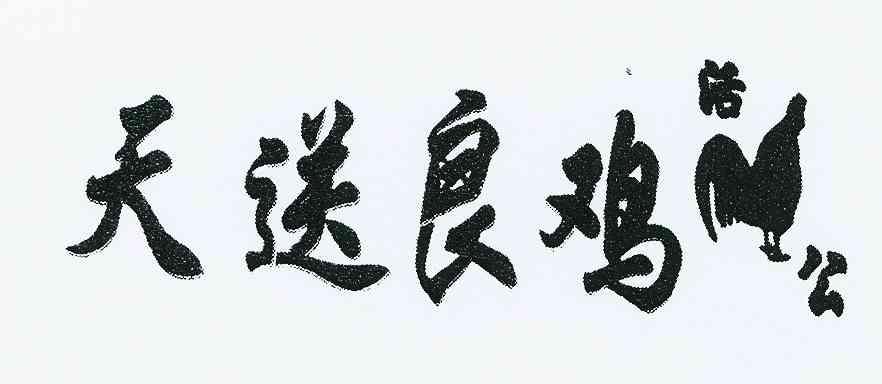 天送良鸡
活
公